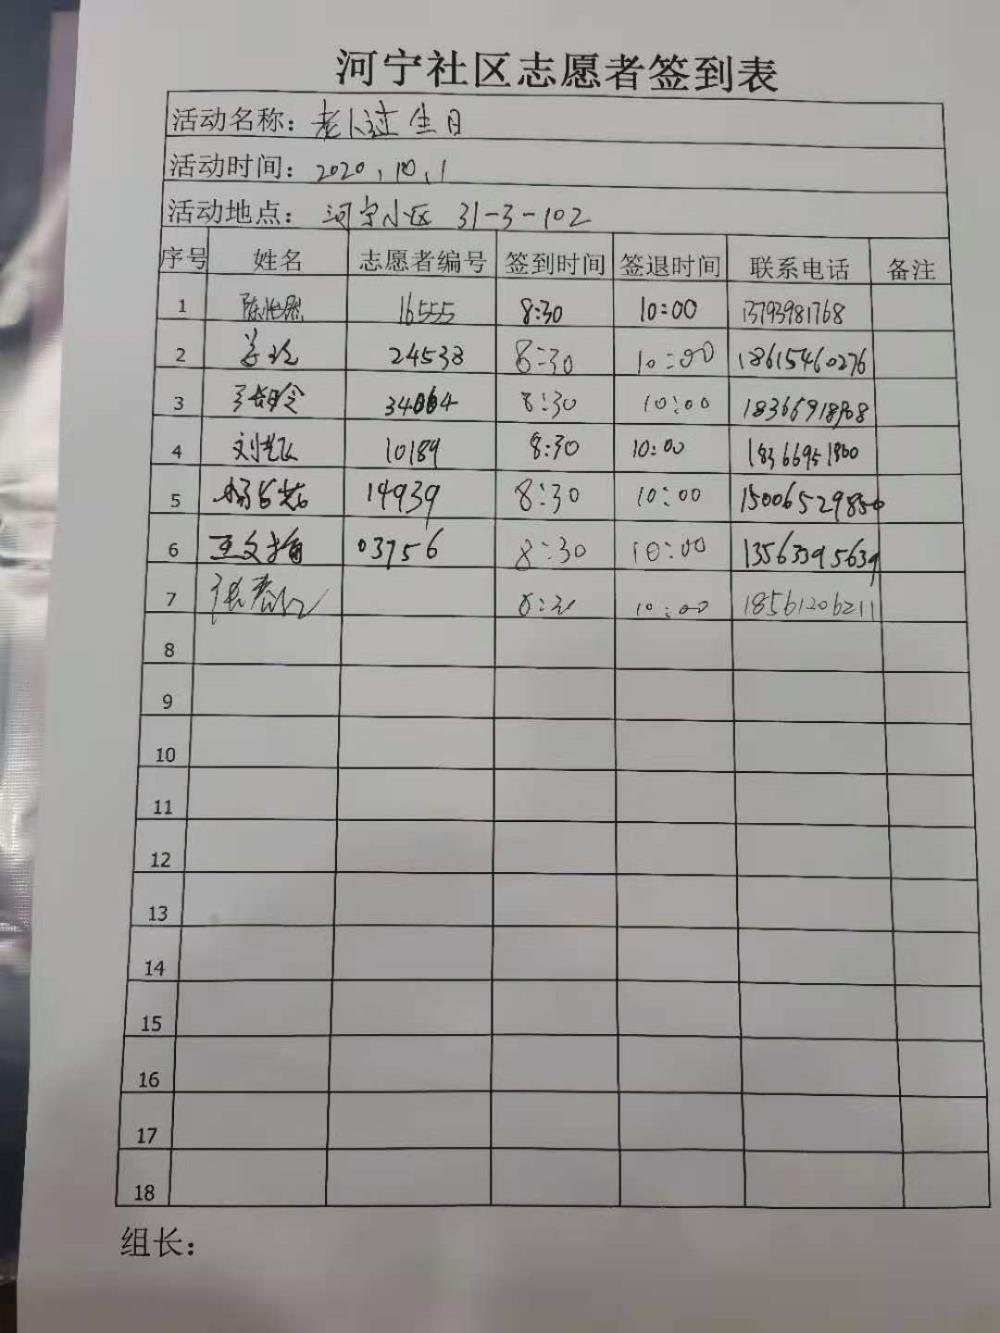 河宁社区志愿者签到表
活动名称：老人过生日
活动时间：2020.10.1
活动地点：河宁小区 31-3-102
序号 姓名 志愿者编号 签到时间 签退时间 联系电话 备注
1 16555 8:30 10:00 13793981768
2 24538 8:30 10:00 18615460276
3 8:30 10:00
4 10189 8:30 10:00
5 14939 8:30 10:00 15006529850
6 03756 8:30 10:00 13563395639
7 10:00 18561206211
8
9
10
11
12
13
14
15
16
17
18
组长：